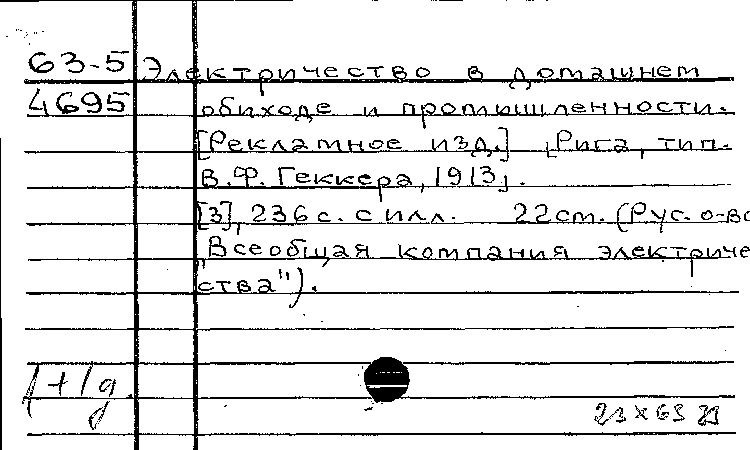 63-5 Электричество в домашнем
4695 обиходе и промышленности.
[Рекламное изд.] [Рига, тип.
В.Ф. Геккера, 1913].
[3], 236 с. с илл. 22 cm. (Рус. о-во
"Всеобщая компания электриче
ства").
1+1g.
23 X 63